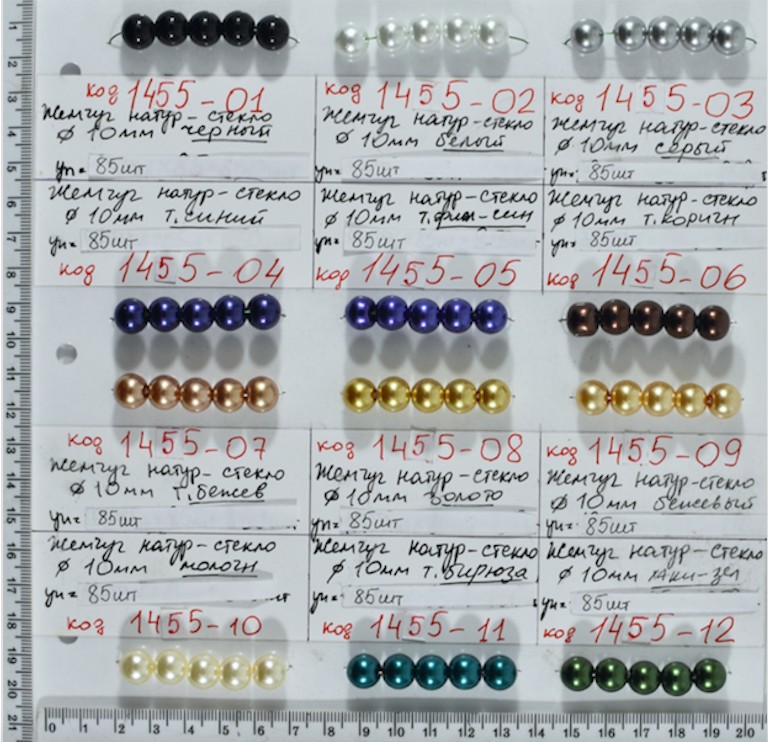 код 1455-01
Жемчуг натур-стекло
Ф 10мм черный
уп= 85шт
код 1455-02
Жемчуг натур-стекло
Ф 10мм белый
уп= 85шт
код 1455-03
Жемчуг натур-стекло
Ф 10мм серый
уп= 85шт
Жемчуг натур-стекло
Ф 10мм т.синий
уп= 85шт
код 1455-04
Жемчуг натур-стекло
Ф 10мм т.фиол-син
уп= 85шт
код 1455-05
Жемчуг натур-стекло
Ф 10мм т.коричн
уп= 85шт
код 1455-06
код 1455-07
Жемчуг натур-стекло
Ф 10мм т.бежев
уп= 85шт
код 1455-08
Жемчуг натур-стекло
Ф 10мм золото
уп= 85шт
код 1455-09
Жемчуг натур-стекло
Ф 10мм бежевый
уп= 85шт
Жемчуг натур-стекло
Ф 10мм молочн
уп= 85шт
код 1455-10
Жемчуг натур-стекло
Ф 10мм т.бирюза
уп= 85шт
код 1455-11
Жемчуг натур-стекло
Ф 10мм хаки-зел
уп= 85шт
код 1455-12
0 1 2 3 4 5 6 7 8 9 10 11 12 13 14 15 16 17 18 19 20